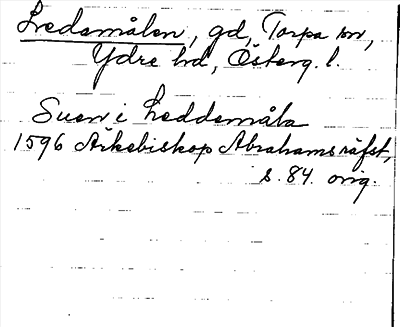 Ledsmålen, gd, Torpa sn,
Ydre hd, Österg. l.
Suen i Leddemåla
1596 Ärkebiskop Abrahams räfst,
s. 84. orig.